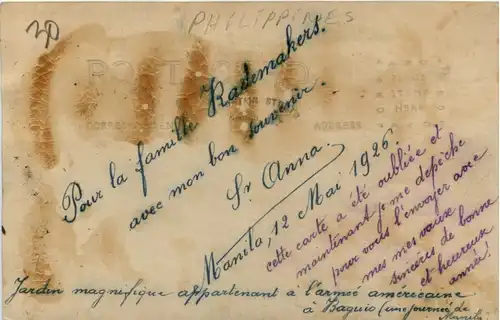 20
PHILIPPINES
POST CARD
CORRESPONDENCE
ADDRESS
Pour la famille Rademakers.
avec mon bon souvenir.
Sr. Anna.
Manila, 12 Mai 1926
cette carte a été oubliée et
maintenant je me dépêche
pour vous l'envoyer avec
mes mes vœux
sincères de bonne
et heureuse
année!
Jardin magnifique appartenant à l'armée américaine
à Baguio (une journée de
Manila